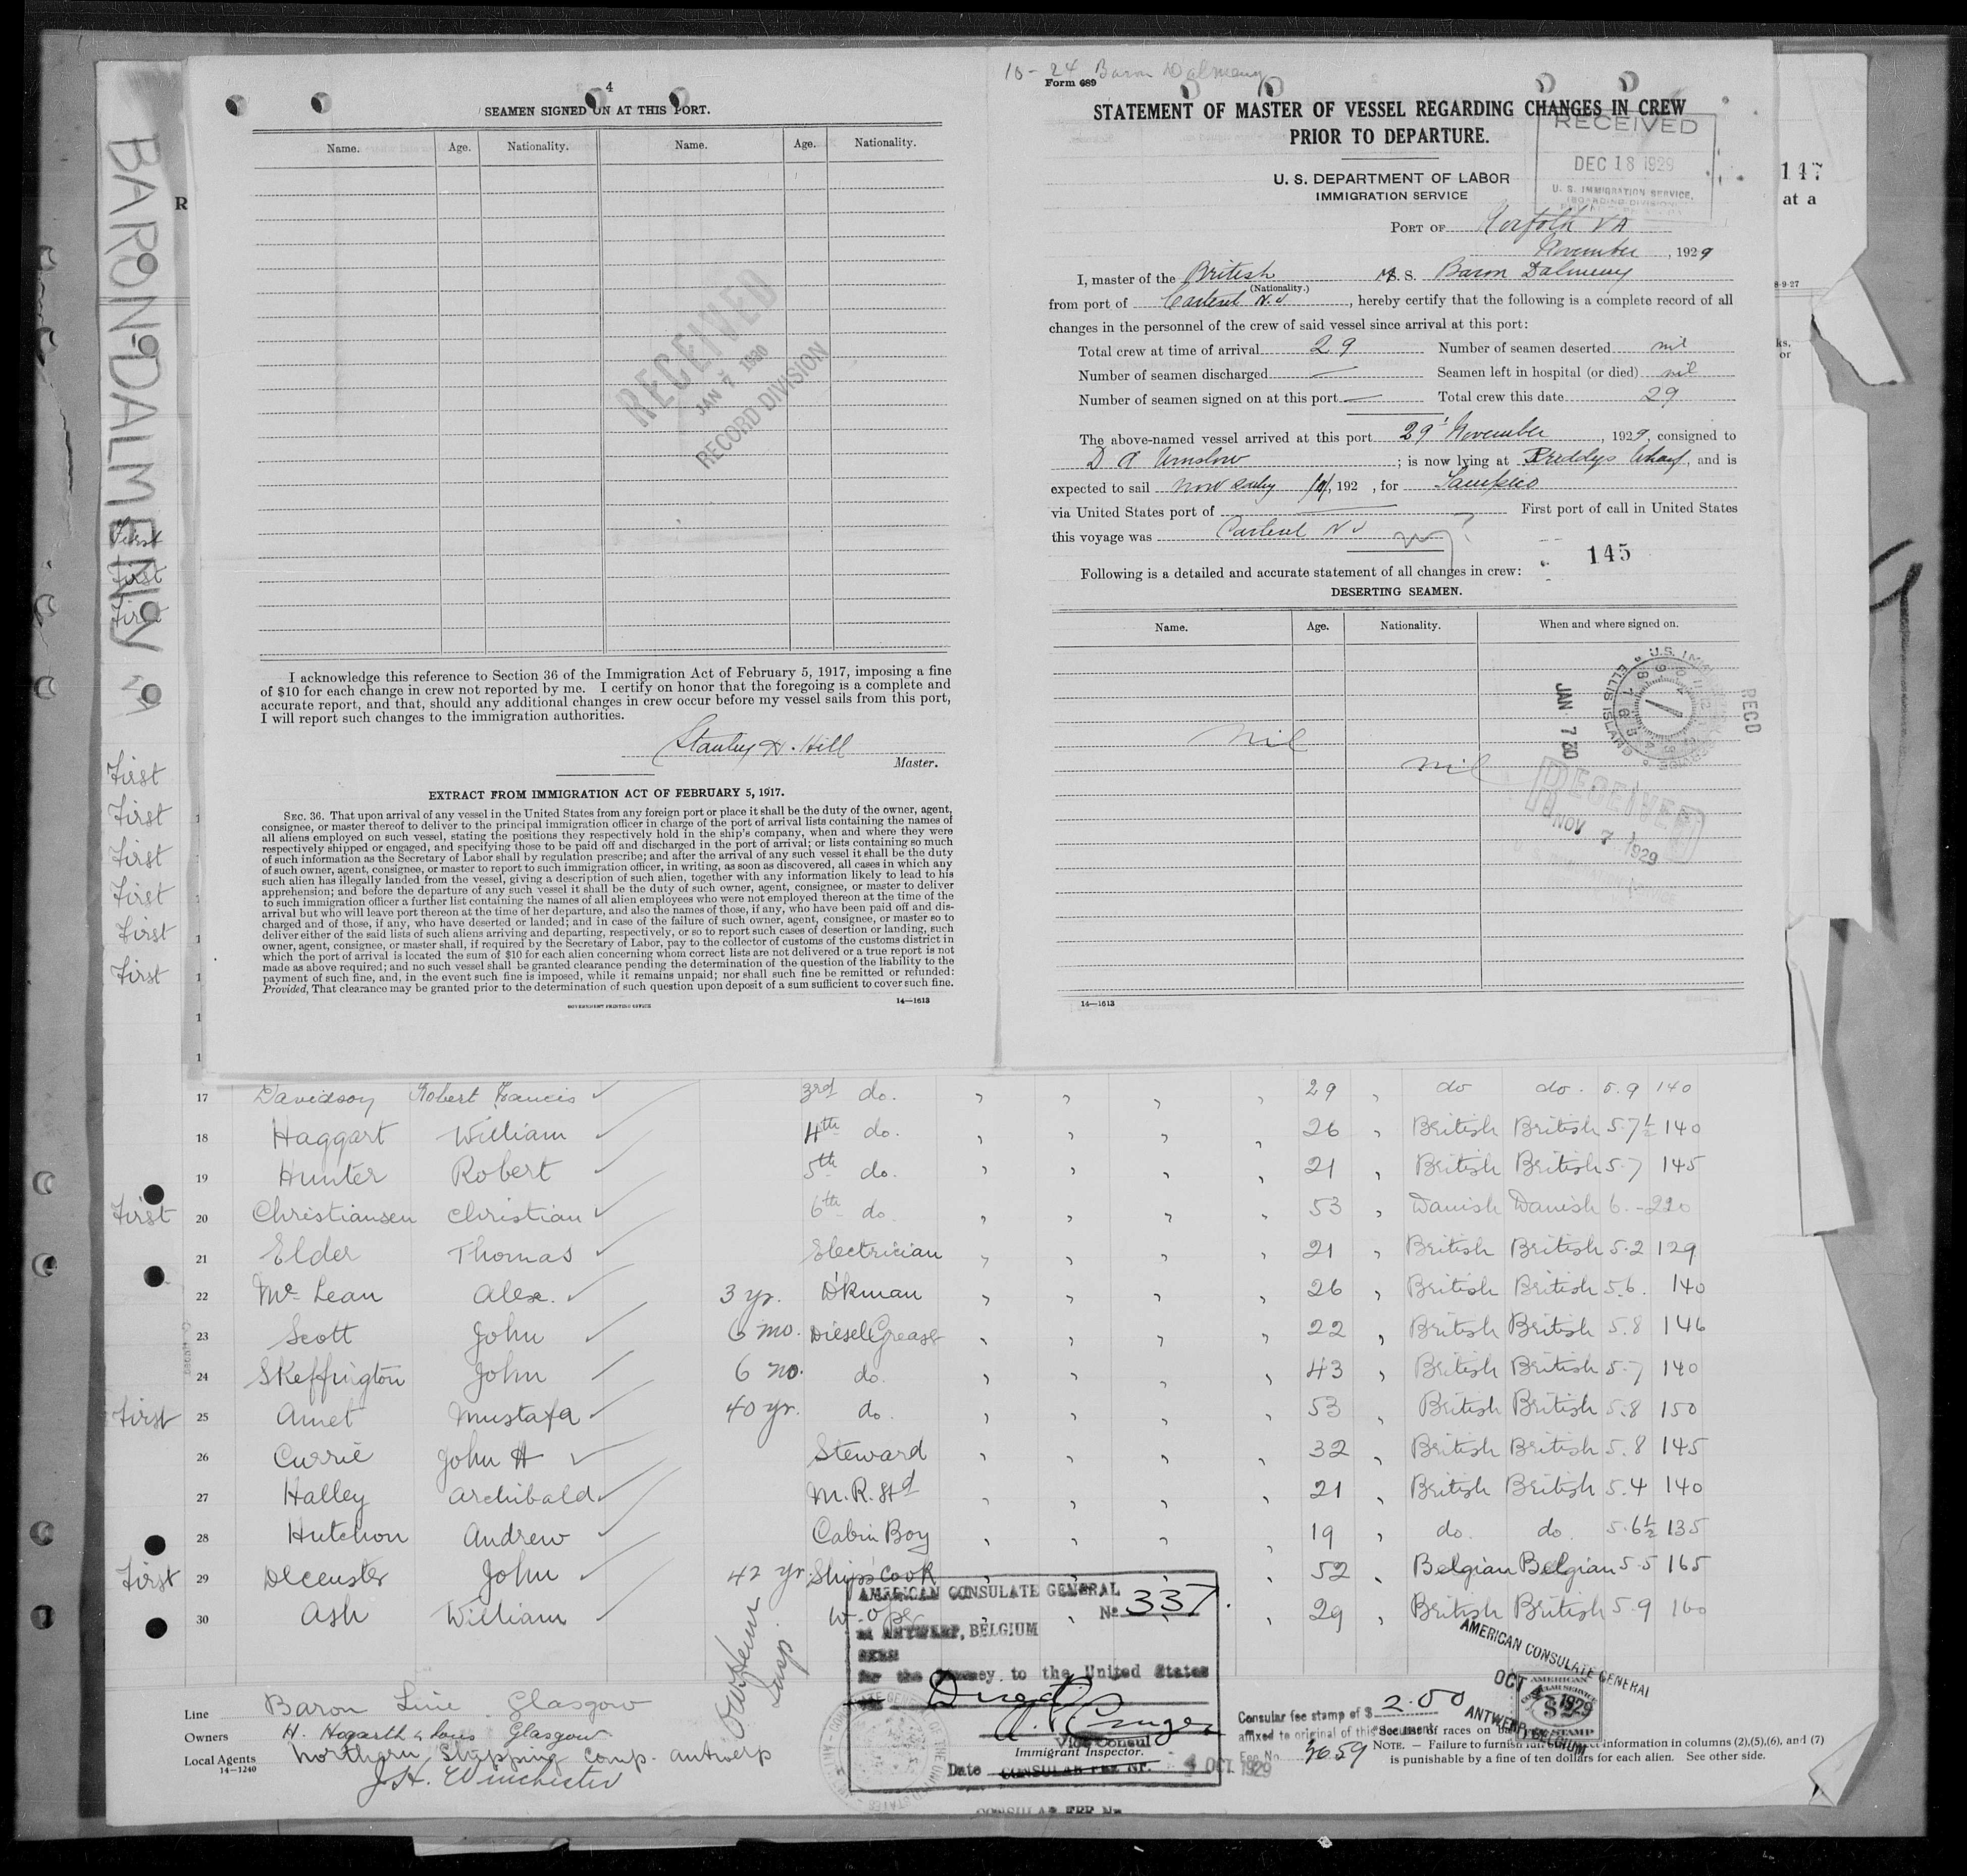 BARON DALMENY
4
SEAMEN SIGNED ON AT THIS PORT.
Name. Age. Nationality. Name. Age. Nationality.
RECEIVED
JAN 7 1930
RECORD DIVISION
I acknowledge this reference to Section 36 of the Immigration Act of February 5, 1917, imposing a fine
of $10 for each change in crew not reported by me. I certify on honor that the foregoing is a complete and
accurate report, and that, should any additional changes in crew occur before my vessel sails from this port,
I will report such changes to the immigration authorities.
Stanley H. Hill
Master.
EXTRACT FROM IMMIGRATION ACT OF FEBRUARY 5, 1917.
SEC. 36. That upon arrival of any vessel in the United States from any foreign port or place it shall be the duty of the owner, agent,
consignee, or master thereof to deliver to the principal immigration officer in charge of the port of arrival lists containing the names of
all aliens employed on such vessel, stating the positions they respectively hold in the ship's company, when and where they were
respectively shipped or engaged, and specifying those to be paid off and discharged in the port of arrival; or lists containing so much
of such information as the Secretary of Labor shall by regulation prescribe; and after the arrival of any such vessel it shall be the duty
of such owner, agent, consignee, or master to report to such immigration officer, in writing, as soon as discovered, all cases in which any
such alien has illegally landed from the vessel, giving a description of such alien, together with any information likely to lead to his
apprehension; and before the departure of any such vessel it shall be the duty of such owner, agent, consignee, or master to deliver
to such immigration officer a further list containing the names of all alien employees who were not employed thereon at the time of the
arrival but who will leave port thereon at the time of her departure, and also the names of those, if any, who have been paid off and dis-
charged and of those, if any, who have deserted or landed; and in case of the failure of such owner, agent, consignee, or master so to
deliver either of the said lists of such aliens arriving and departing, respectively, or so to report such cases of desertion or landing, such
owner, agent, consignee, or master shall, if required by the Secretary of Labor, pay to the collector of customs of the customs district in
which the port of arrival is located the sum of $10 for each alien concerning whom correct lists are not delivered or a true report is not
made as above required; and no such vessel shall be granted clearance pending the determination of the question of the liability to the
payment of such fine, and, in the event such fine is imposed, while it remains unpaid; nor shall such fine be remitted or refunded:
Provided, That clearance may be granted prior to the determination of such question upon deposit of a sum sufficient to cover such fine.
GOVERNMENT PRINTING OFFICE 14—1613
10-24 Baron Dalmeny
Form 689
STATEMENT OF MASTER OF VESSEL REGARDING CHANGES IN CREW
PRIOR TO DEPARTURE.
RECEIVED
DEC 18 1929
U. S. IMMIGRATION SERVICE,
(BOARDING DIVISION)
U. S. DEPARTMENT OF LABOR
IMMIGRATION SERVICE
PORT OF Norfolk VA
November, 1929
I, master of the British M. S. Baron Dalmeny
(Nationality.)
from port of Carteret N.J, hereby certify that the following is a complete record of all
changes in the personnel of the crew of said vessel since arrival at this port:
Total crew at time of arrival 29 Number of seamen deserted nil
Number of seamen discharged — Seamen left in hospital (or died) nil
Number of seamen signed on at this port — Total crew this date 29
The above-named vessel arrived at this port 29 November, 1929, consigned to
; is now lying at Wharf, and is
expected to sail, 192 , for Tampico
via United States port of First port of call in United States
this voyage was Carteret N J
145
Following is a detailed and accurate statement of all changes in crew:
DESERTING SEAMEN.
Name. Age. Nationality. When and where signed on.
nil
nil
JAN 7 30
U.S. ELLIS ISLAND
RECD
RECEIVED
NOV 7 1929
14—1613
147
at a
R
8-9-27
ks.
or
First
First
First
First
First
First
First
First
First
17 Davidson Robert Francis 3rd do. 29 do do. 5.9 140
18 Haggart William 4th do. 26 British British 5.7½ 140
19 Hunter Robert 5th do. 21 British British 5.7 145
First 20 Christiansen Christian 6th do 53 Danish Danish 6.- 220
21 Elder Thomas Electrician 21 British British 5.2 129
22 Mc Lean Alex. 3 yr. D'kman 26 British British 5.6. 140
23 Scott John 6 mo. Diesel Greaser 22 British British 5.8 146
24 Skeffington John 6 mo. do. 43 British British 5.7 140
First 25 Amet Mustafa 40 yr. do. 53 British British 5.8 150
26 Currie John H Steward 32 British British 5.8 145
27 Halley Archibald M.R. Std 21 British British 5.4 140
28 Hutchon Andrew Cabin Boy 19 do. do. 5.6½ 135
First 29 Deceuster John 42 yr. Ship's Cook 52 Belgian Belgian 5.5 165
30 Ash William 29 British British 5.9 160
AMERICAN CONSULATE GENERAL
No 337.
at ANTWERP, BELGIUM
SEEN
for the journey to the United States
Direct
Vice Consul
Immigrant Inspector.
Date CONSULAR FEE Nr. 4 OCT 1929
CONSULAR FEE No
Line Baron Line. Glasgow
Owners H. Hogarth & Sons Glasgow
Local Agents Northern Shipping Comp. Antwerp
14—1240
J.H. Winchester
Consular fee stamp of $ 2.00
affixed to original of this document
Fee No. 3659
AMERICAN CONSULATE GENERAL
OCT 4 1929
ANTWERP, BELGIUM
AMERICAN CONSULAR SERVICE
$2
FEE STAMP
See list of races on
NOTE. — Failure to furnish information in columns (2),(5),(6), and (7)
is punishable by a fine of ten dollars for each alien. See other side.